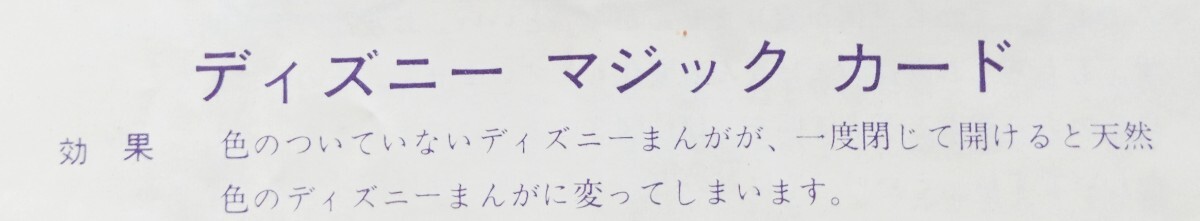 ディズニー マジック カード
効 果 色のついていないディズニーまんがが、一度閉じて開けると天然
色のディズニーまんがに変ってしまいます。